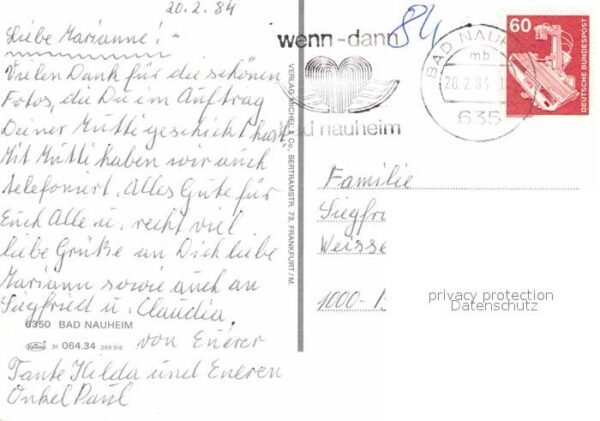 20.2.84
Liebe Marianne! -
Vielen Dank für die schönen
Fotos, die Du im Auftrag
Deiner Mutti geschickt hast.
Mit Mutti haben wir auch
telefoniert. Alles Gute für
Euch Alle u. recht viel
liebe Grüße an Dich liebe
Mariann sowie auch an
Siegfried u. Claudia,
von Euerer
Tante Hilda und Eueren
Onkel Paul
6350 BAD NAUHEIM
01 064.34 265316
VERLAG MICHEL & Co., BERTRAMSTR. 73, FRANKFURT/M.
wenn-dann
bad nauheim
84
BAD NAUHEIM
mb
20.2.84
635
60
DEUTSCHE BUNDESPOST
Familie
Siegfri
Weisse
1000-
privacy protection
Datenschutz